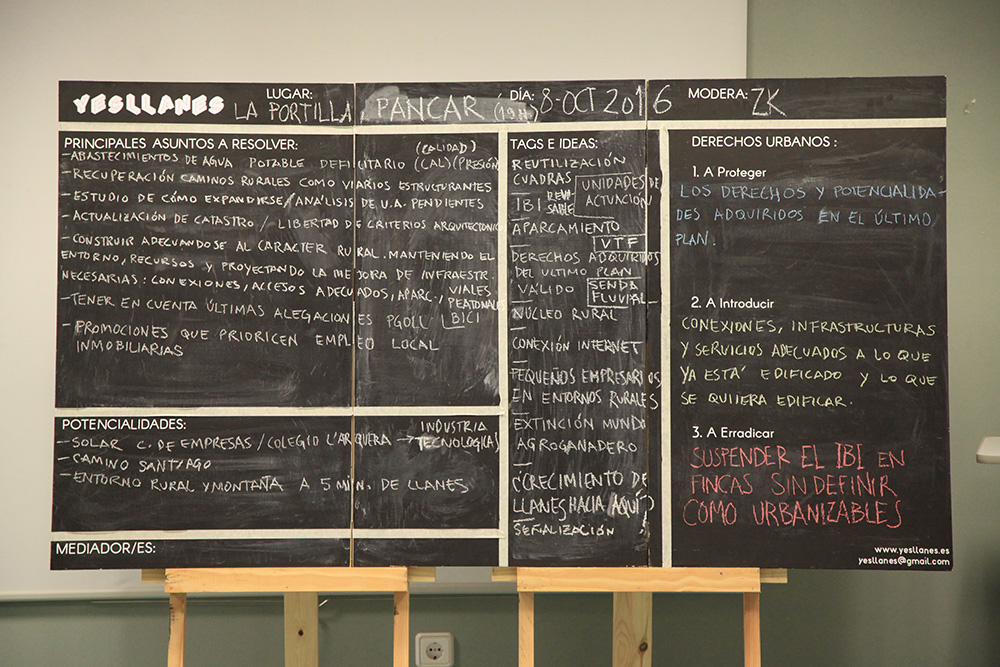 YESLLANES
LUGAR: LA PORTILLA, PANCAR (19H)
DÍA: 8-OCT 2016
MODERA: ZK
PRINCIPALES ASUNTOS A RESOLVER:
(CALIDAD)
-ABASTECIMIENTOS DE AGUA POTABLE DEFICITARIO (CAL)(PRESIÓN)
-RECUPERACIÓN CAMINOS RURALES COMO VIARIOS ESTRUCTURANTES
-ESTUDIO DE CÓMO EXPANDIRSE/ANÁLISIS DE U.A. PENDIENTES
-ACTUALIZACIÓN DE CATASTRO / LIBERTAD DE CRITERIOS ARQUITECTÓNIC
-CONSTRUIR ADECUANDOSE AL CARACTER RURAL. MANTENIENDO EL
ENTORNO, RECURSOS Y PROYECTANDO LA MEJORA DE INFRAESTR.
NECESARIAS: CONEXIONES, ACCESOS ADECUADOS, APARC., VIALES,
PEATONALES
BICI
-TENER EN CUENTA ÚLTIMAS ALEGACIONES PGOLL
-PROMOCIONES QUE PRIORICEN EMPLEO LOCAL
INMOBILIARIAS
POTENCIALIDADES:
-SOLAR C. DE EMPRESAS / COLEGIO L'ARQUERA → INDUSTRIA
TECNOLOGICA
-CAMINO SANTIAGO
-ENTORNO RURAL Y MONTAÑA A 5 MIN. DE LLANES
MEDIADOR/ES:
TAGS E IDEAS:
REUTILIZACIÓN
CUADRAS
UNIDADES DE
ACTUACIÓN
IBI REVISABLE
APARCAMIENTO
VTF
DERECHOS ADQUIRIDOS
DEL ULTIMO PLAN
VALIDO
SENDA
FLUVIAL
NÚCLEO RURAL
CONEXIÓN INTERNET
PEQUEÑOS EMPRESARIOS
EN ENTORNOS RURALES
EXTINCIÓN MUNDO
AGROGANADERO
¿CRECIMIENTO DE
LLANES HACIA AQUÍ?
SEÑALIZACIÓN
DERECHOS URBANOS :
1. A Proteger
LOS DERECHOS Y POTENCIALIDA-
DES ADQUIRIDOS EN EL ÚLTIMO
PLAN.
2. A Introducir
CONEXIONES, INFRASTRUCTURAS
Y SERVICIOS ADECUADOS A LO QUE
YA ESTÁ EDIFICADO Y LO QUE
SE QUIERA EDIFICAR.
3. A Erradicar
SUSPENDER EL IBI EN
FINCAS SIN DEFINIR
COMO URBANIZABLES
www.yesllanes.es
yesllanes@gmail.com